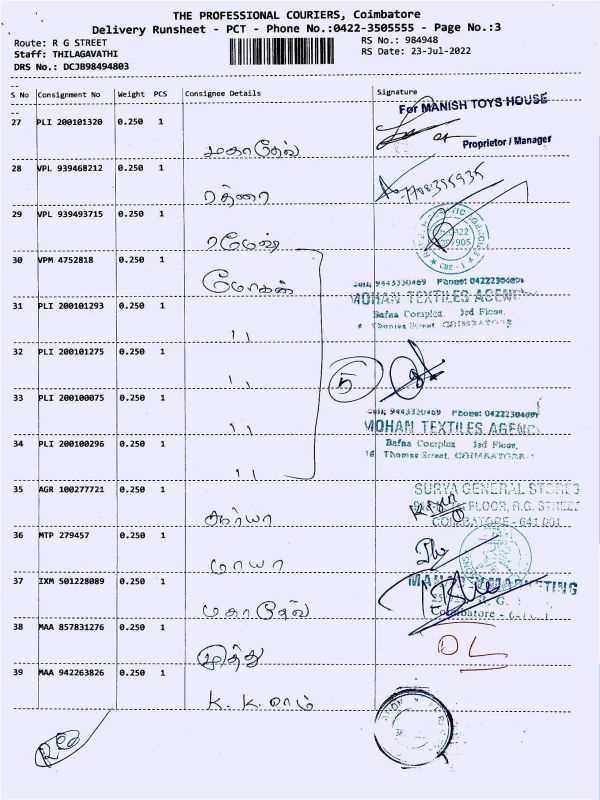 THE PROFESSIONAL COURIERS, Coimbatore
Delivery Runsheet - PCT - Phone No.:0422-3505555 - Page No.:3
Route: R G STREET
RS No.: 984948
Staff: THILAGAVATHI
RS Date: 23-Jul-2022
DRS No.: DCJB98494803
--
S No Consignment No Weight PCS Consignee Details Signature
--
For MANISH TOYS HOUSE
27 PLI 200101320 0.250 1
Proprietor / Manager
மகாதேவ்
28 VPL 939468212 0.250 1
29 VPL 939493715 0.250 1
ரமேஷ்
CBE - 1
30 VPM 4752818 0.250 1
மோகன்
MOHAN TEXTILES AGENCY
Bafna Complex, 3rd Floor,
Thomas Street, COIMBATORE
31 PLI 200101293 0.250 1
''
32 PLI 200101275 0.250 1
''
5
33 PLI 200100075 0.250 1
''
Cell, 9443330469 Phone: 04222304691
MOHAN TEXTILES AGENCY
Bafna Complex 3rd Floor,
16 Thomas Street, COIMBATORE-1
34 PLI 200100296 0.250 1
''
35 AGR 100277721 0.250 1
SURYA GENERAL STORES
FLOOR, R.G. STREET
COIMBATORE - 641 001
சூர்யா
36 MTP 279457 0.250 1
மாயா
37 IXM 501228089 0.250 1
MARKETING
R. G.
Coimbatore
மகாதேவ்
38 MAA 857831276 0.250 1
முத்து
OL
39 MAA 942263826 0.250 1
K. K. லாம்